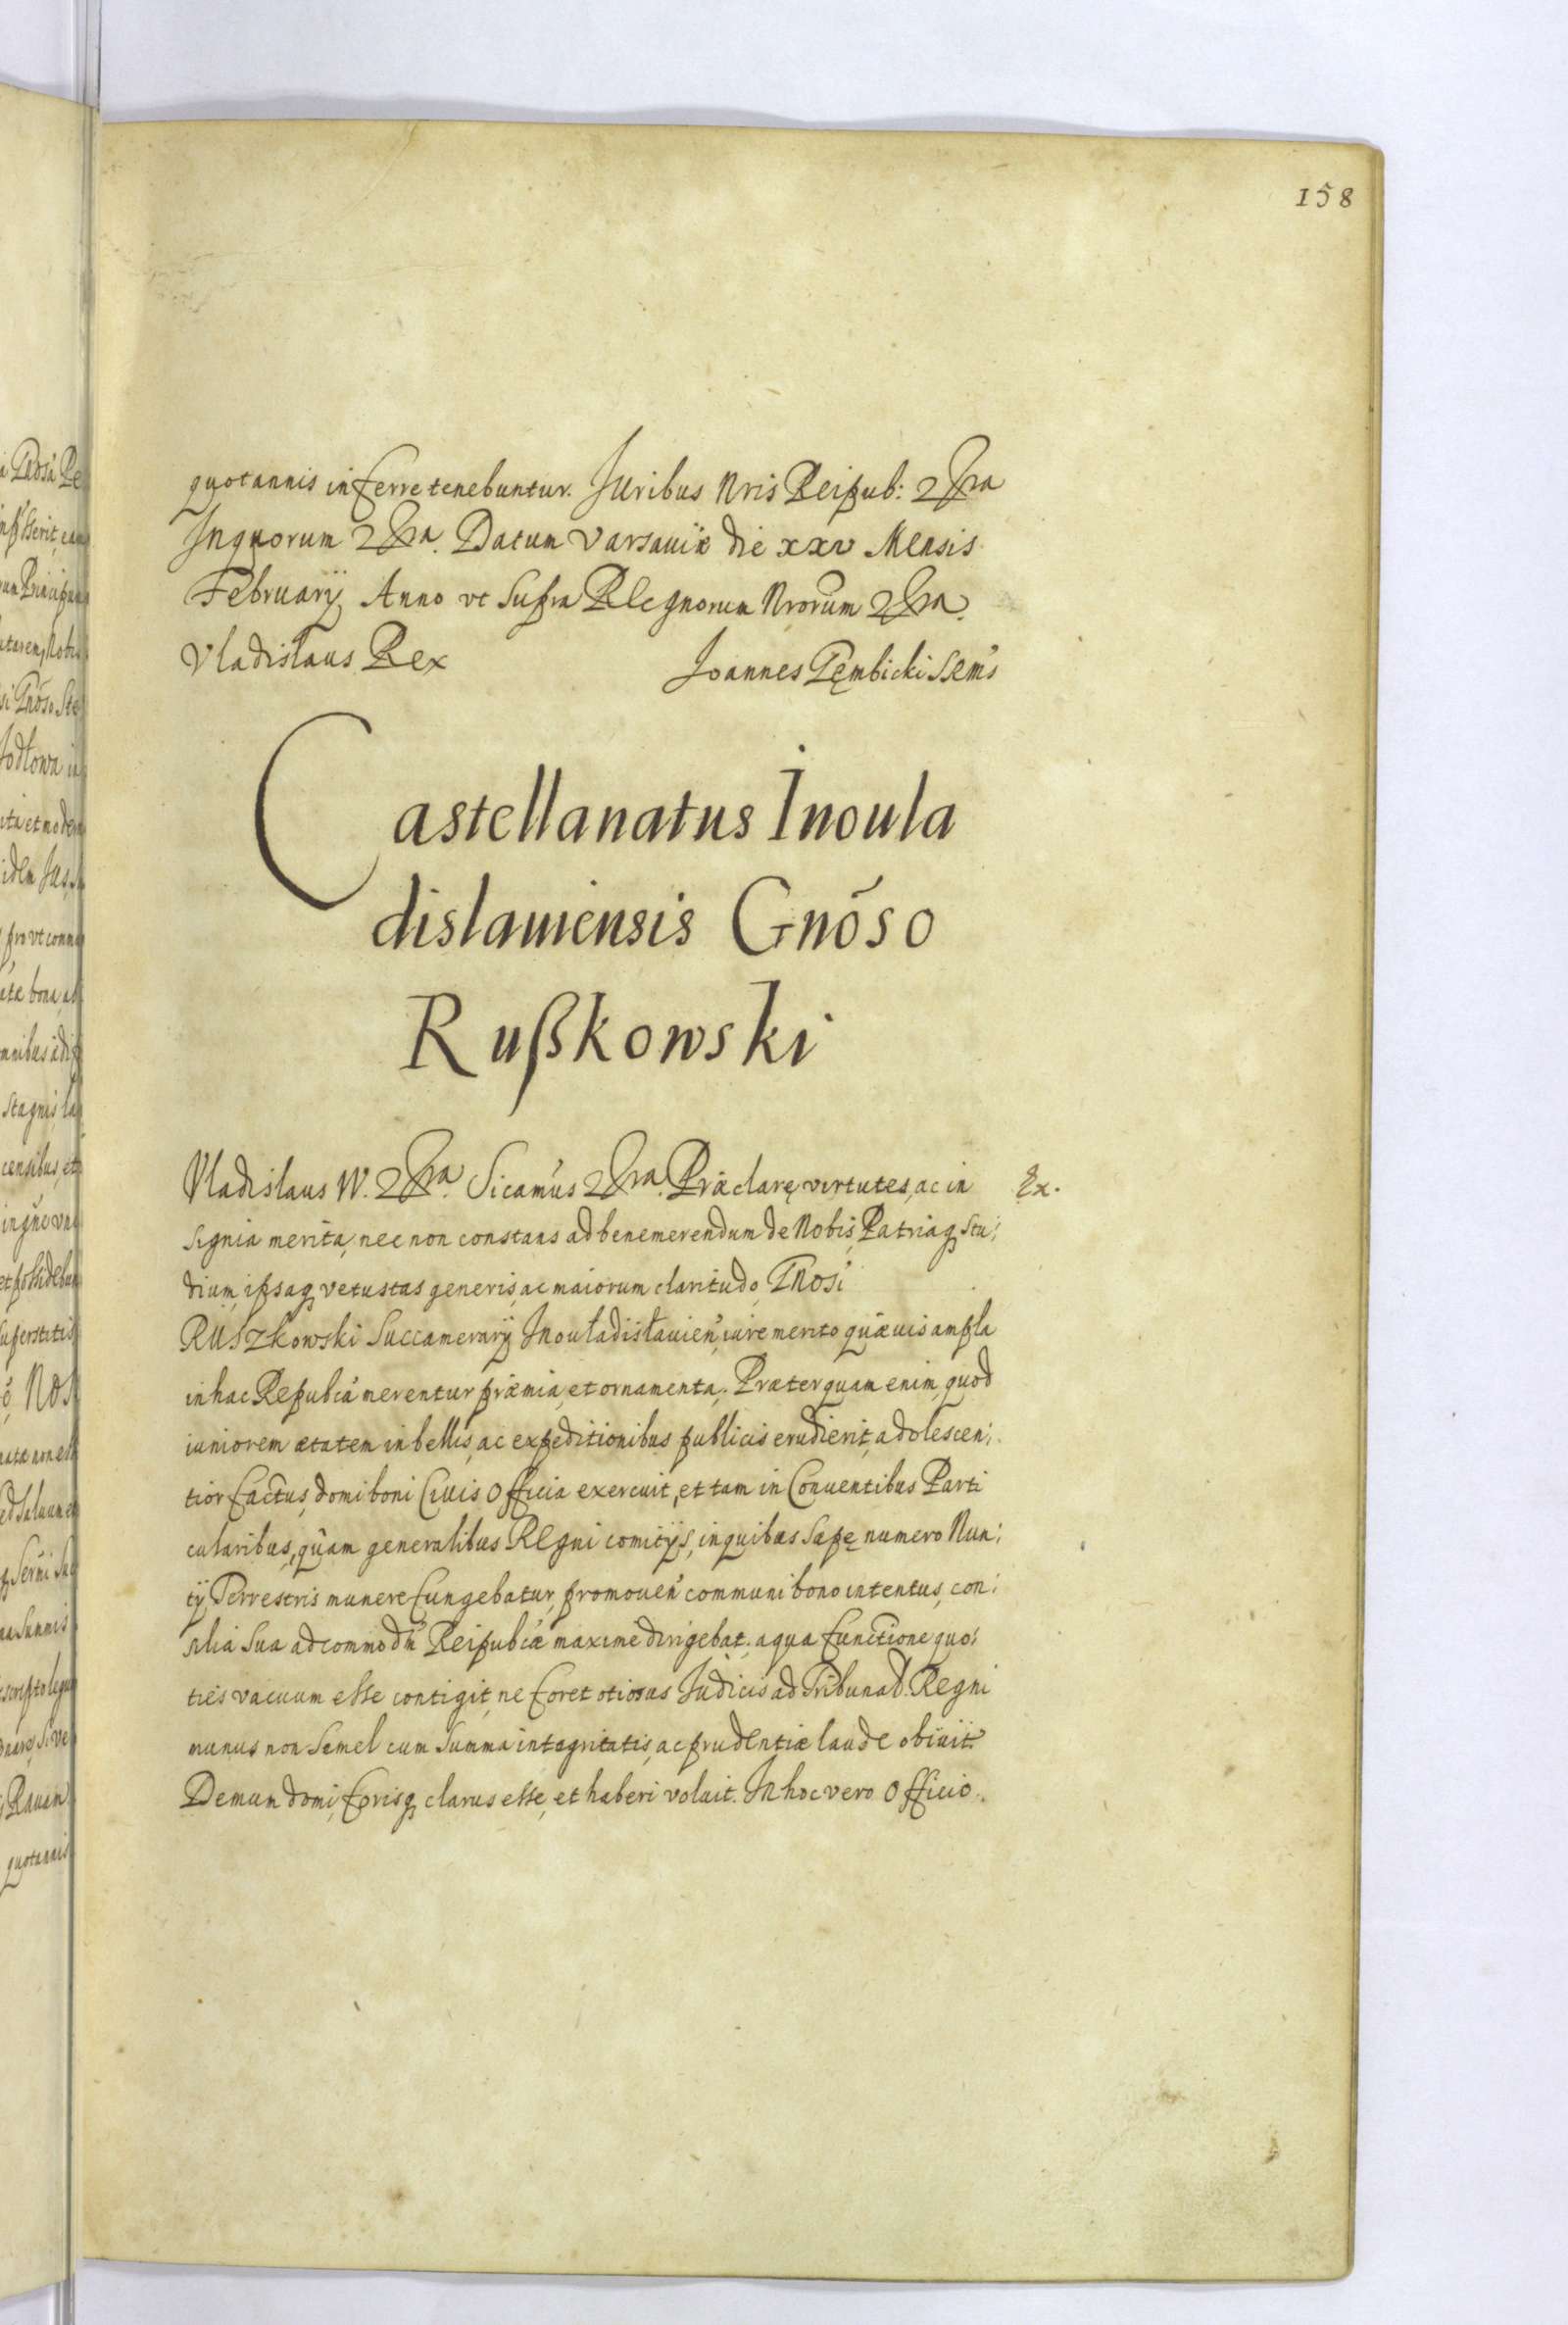 158
quotannis inferre tenebuntur. Juribus Nris Reipub: &ra
Inquorum &ra. Datum Varsauiæ die xxv Mensis
Februarÿ Anno vt supra Regnorum Nrorum &ra.
Vladislaus Rex Joannes Gębicki
Castellanatus Inoula
dislauiensis Gnōso
Rußkowski
Vladislaus IV. &ra. Sicamus &ra. Præclarę virtutes, ac in Ex.
signia merita, nec non constans ad benemerendum de Nobis, Patriaq stu:
dium, ipsaq vetustas generis, ac maiorum claritudo, Gnosi
Ruszkowski Succamerarÿ Inouładisłauien, iure merito quæuis ampla
in hac Repubca merentur præmia, et ornamenta. Præterquam enim, quod
iuniorem ætatem in bellis, ac expeditionibus publicis erudierit, adolescen:
tior factus, domi boni Ciuis Officia exercuit, et tam in Conuentibus Parti
cularibus, quam generalibus Regni comitÿs, in quibus sæpę numero Nun:
tÿ Terrestris munere fungebatur, promouen communi bono intentus, con:
silia sua ad commodū Reipubcæ maxime dirigebat. a qua functione quo:
ties vacuum esse contigit, ne foret otiosus Judicis ad Tribunal Regni
munus non semel cum summa integritatis, ac prudentiæ laude obiuit.
Demum domi, forisq clarus esse, et haberi voluit. In hoc vero Officio.